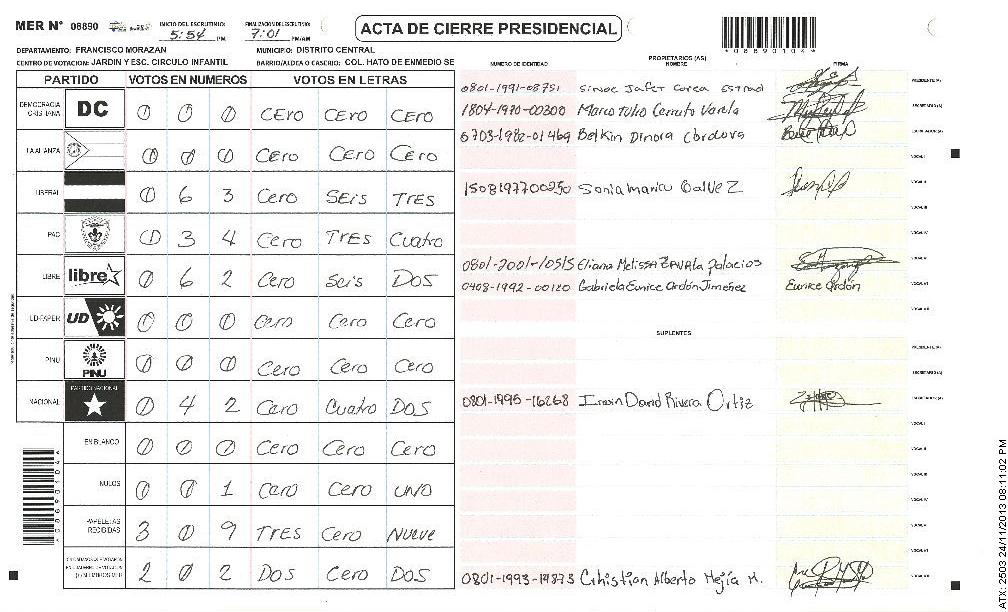 MER N° 08890 INICIO DEL ESCRUTINIO: 5:54 PM FINALIZACION DEL ESCRUTINIO: 7:01 PM/AM ACTA DE CIERRE PRESIDENCIAL
DEPARTAMENTO: FRANCISCO MORAZAN MUNICIPIO: DISTRITO CENTRAL
CENTRO DE VOTACION: JARDIN Y ESC. CIRCULO INFANTIL BARRIO/ALDEA O CASERIO: COL. HATO DE ENMEDIO SE
NUMERO DE IDENTIDAD PROPIETARIOS (AS) NOMBRE FIRMA
PARTIDO VOTOS EN NUMEROS VOTOS EN LETRAS
DEMOCRACIA CRISTIANA DC 0 0 0 CERO CERO CERO
LA ALIANZA 0 0 0 Cero Cero Cero
LIBERAL 0 6 3 Cero SEis TRES
PAC 0 3 4 Cero TRES Cuatro
LIBRE libre 0 6 2 Cero Seis DOS
UD-FAPER UD 0 0 0 Cero Cero Cero
PINU PINU 0 0 0 Cero Cero Cero
NACIONAL PARTIDO NACIONAL 0 4 2 Cero Cuatro DOS
EN BLANCO 0 0 0 Cero Cero Cero
NULOS 0 0 1 Cero Cero UNO
PAPELETAS RECIBIDAS 3 0 9 TRES Cero NUEVE
2 0 2 DOS Cero DOS
0801-1991-08751 PRESIDENTE(A)
1804-1970-00300 Marco Tulio Cerrato Varela SECRETARIO(A)
0703-1982-01469 Belkin Dinora Cordova ESCRUTADOR(A)
150819770 0250 Sonia Marica Galvez
0801-2001-10515 Eliana Melissa ZAVALA Palacios
0408-1992-00120 Gabriela Eunice Ordón Jiménez Eunice Ordón
SUPLENTES
PRESIDENTE(A)
SECRETARIO(A)
0801-1995-16268 Irwin David Rivera Ortiz ESCRUTADOR(A)
0801-1993-14873 Christian Alberto Mejía M.
ATX: 2503 24/11/2013 08:11:02 PM